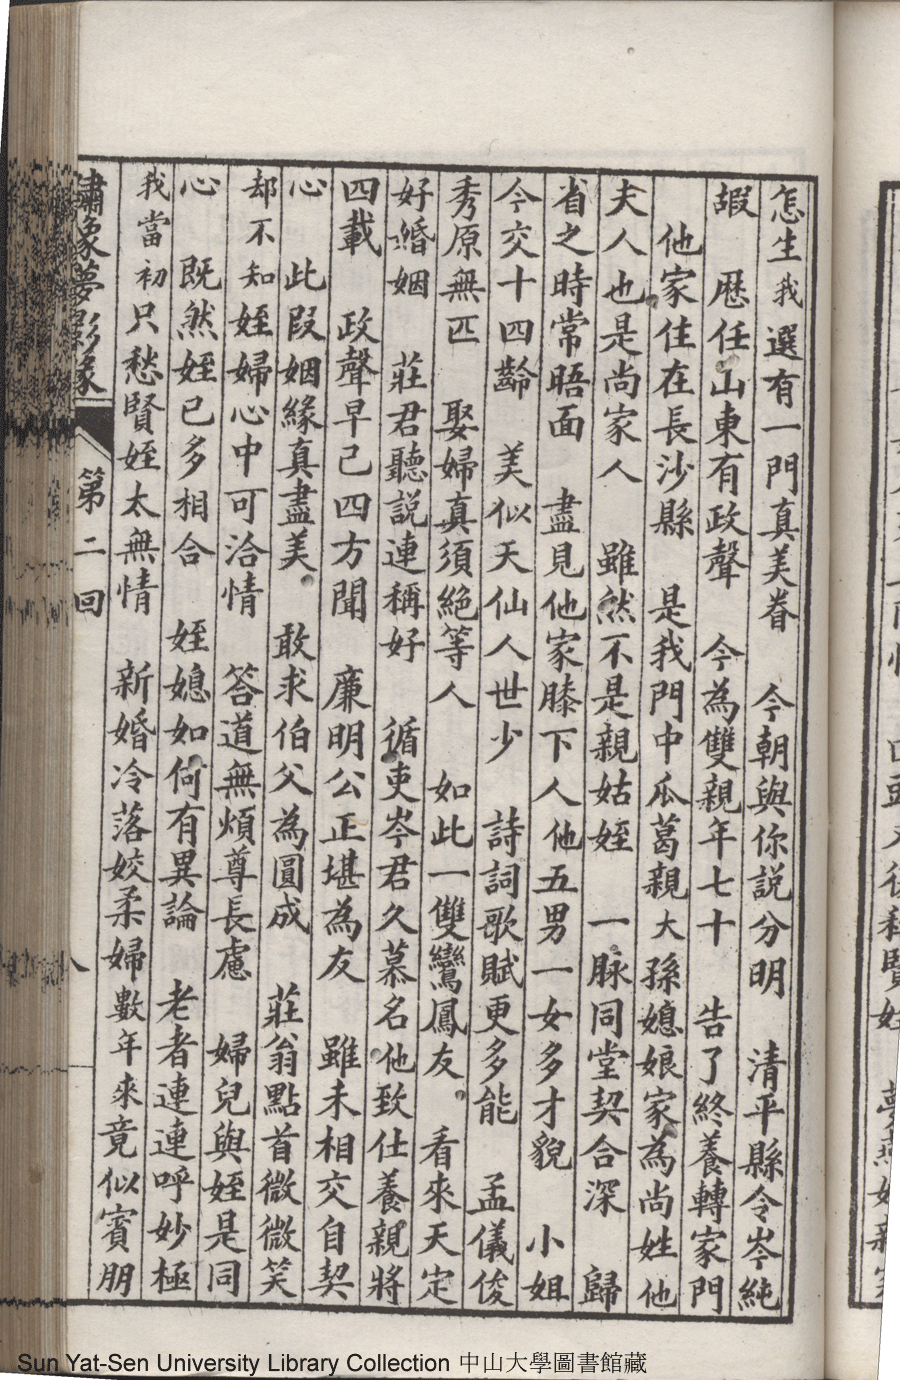 怎生我選有一門真美眷　今朝與你説分明　清平縣令岑純
嘏　歷任山東有政聲　今為雙親年七十　告了終養轉家門
他家住在長沙縣　是我門中瓜葛親大孫媳娘家為尚姓他
夫人也是尚家人　雖然不是親姑姪　一脉同堂契合深　歸
省之時常晤面　盡見他家膝下人他五男一女多才貌　小姐
今交十四齡　美似天仙人世少　詩詞歌賦更多能　孟儀俊
秀原無匹　娶婦真須絶等人　如此一雙鸞鳳友　看來天定
好婚姻　莊君聽説連稱好　循吏岑君久慕名他致仕養親將
四載　政聲早己四方聞　廉明公正堪為友　雖未相交自契
心　此叚姻緣真盡美　敢求伯父為圓成　莊翁點首微微笑
却不知姪婦心中可洽情　答道無煩尊長慮　婦兒與姪是同
心　既然姪己多相合　姪媳如何有異論　老者連連呼妙極
我當初只愁賢姪太無情　新婚冷落姣柔婦數年來竟似賓朋
繡像夢影緣　第二回　八
Sun Yat-Sen University Library Collection 中山大學圖書館藏